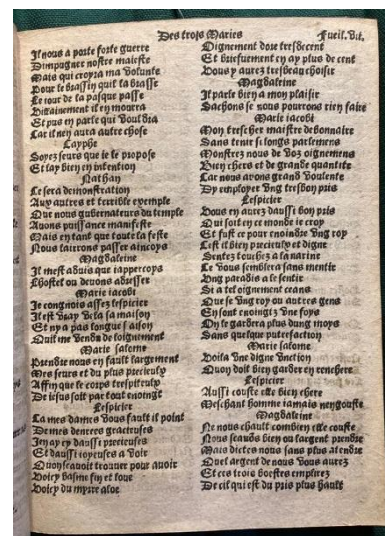 Des trois Maries
Fueil. vii.
Il nous a porte forte guerre
Dimpugner nostre maieste
Mais qui croyra ma volunte
Pour le brassin quil la brasse
Le iour de la pasque passe
Villainement il en mourra
Et pus en parle qui vouldra
Car il nen aura autre chose
Cayphe
Soyez seurs que ie le propose
Et lay bien en intention
Nathan
Ce sera demonstration
Aux autres et terrible exemple
Que nous gubernateurs du temple
Auons puissance manifeste
Mais en tant que toute la feste
Nous lairrons passer aincoys
Magdaleine
Il mest aduis que iappercoys
Lhostel ou deuons adresser
Marie iacobi
Ie congnois assez lespicier
Il est vray vela sa maison
Et ny a pas longue saison
Quil me vendit de loignement
Marie salome
Prendre nous en fault largement
Mes seurs et du plus precieulx
Affin que le corps trespiteulx
De iesus soit par tout enoingt
Lespicier
La mes dames vous fault il point
Demes denrees gracieuses
Ien ay cy daussi precieuses
Et daussi ioyeuses a veoir
Quon scauroit trouuer pour auoir
Voicy basme fin et loue
Voicy du myrre aloe
Oignement dore tresdecent
Et briefuement en ay plus de cent
Vous y aurez tresbeau choisir
Magdaleine
Il parle bien a mon plaisir
Sachons se nous pourrons rien faire
Marie iacobi
Mon trescher maistre debonnaire
Sans tenir si longs parlemens
Monstrez nous de voz oignemens
Bien chers et de grande quantite
Car nous auons grand voulente
Dy employer vng tresbon pris
Lespicier
Vous en aurez daussi bon pris
Qui soit en ce monde ie croy
Et fust ce pour enoindre vng roy
Cest il bien precieulx et digne
Sentez touchez a la narine
Ce vous semblera sans mentir
Vng paradis a le sentir
Si a tel oignement ceans
Que se vng roy ou autres gens
En sont enoingtz vne foys
On le gardera plus dung moys
Sans quelque putrefaction
Marie salome
Voila vne digne vnction
Quon doit bien garder en renchere
Lespicier
Aussi couste elle bien chere
Meschant homme iamais nen gouste
Magdaleine
Ne nous chault combien elle couste
Nous scauds bien ou largent prendre
Mais dictes nous sans plus atendre
Quel argent de nous vous aurez
Et ces trois boestes emplirez
De cil qui est du pris plus hault